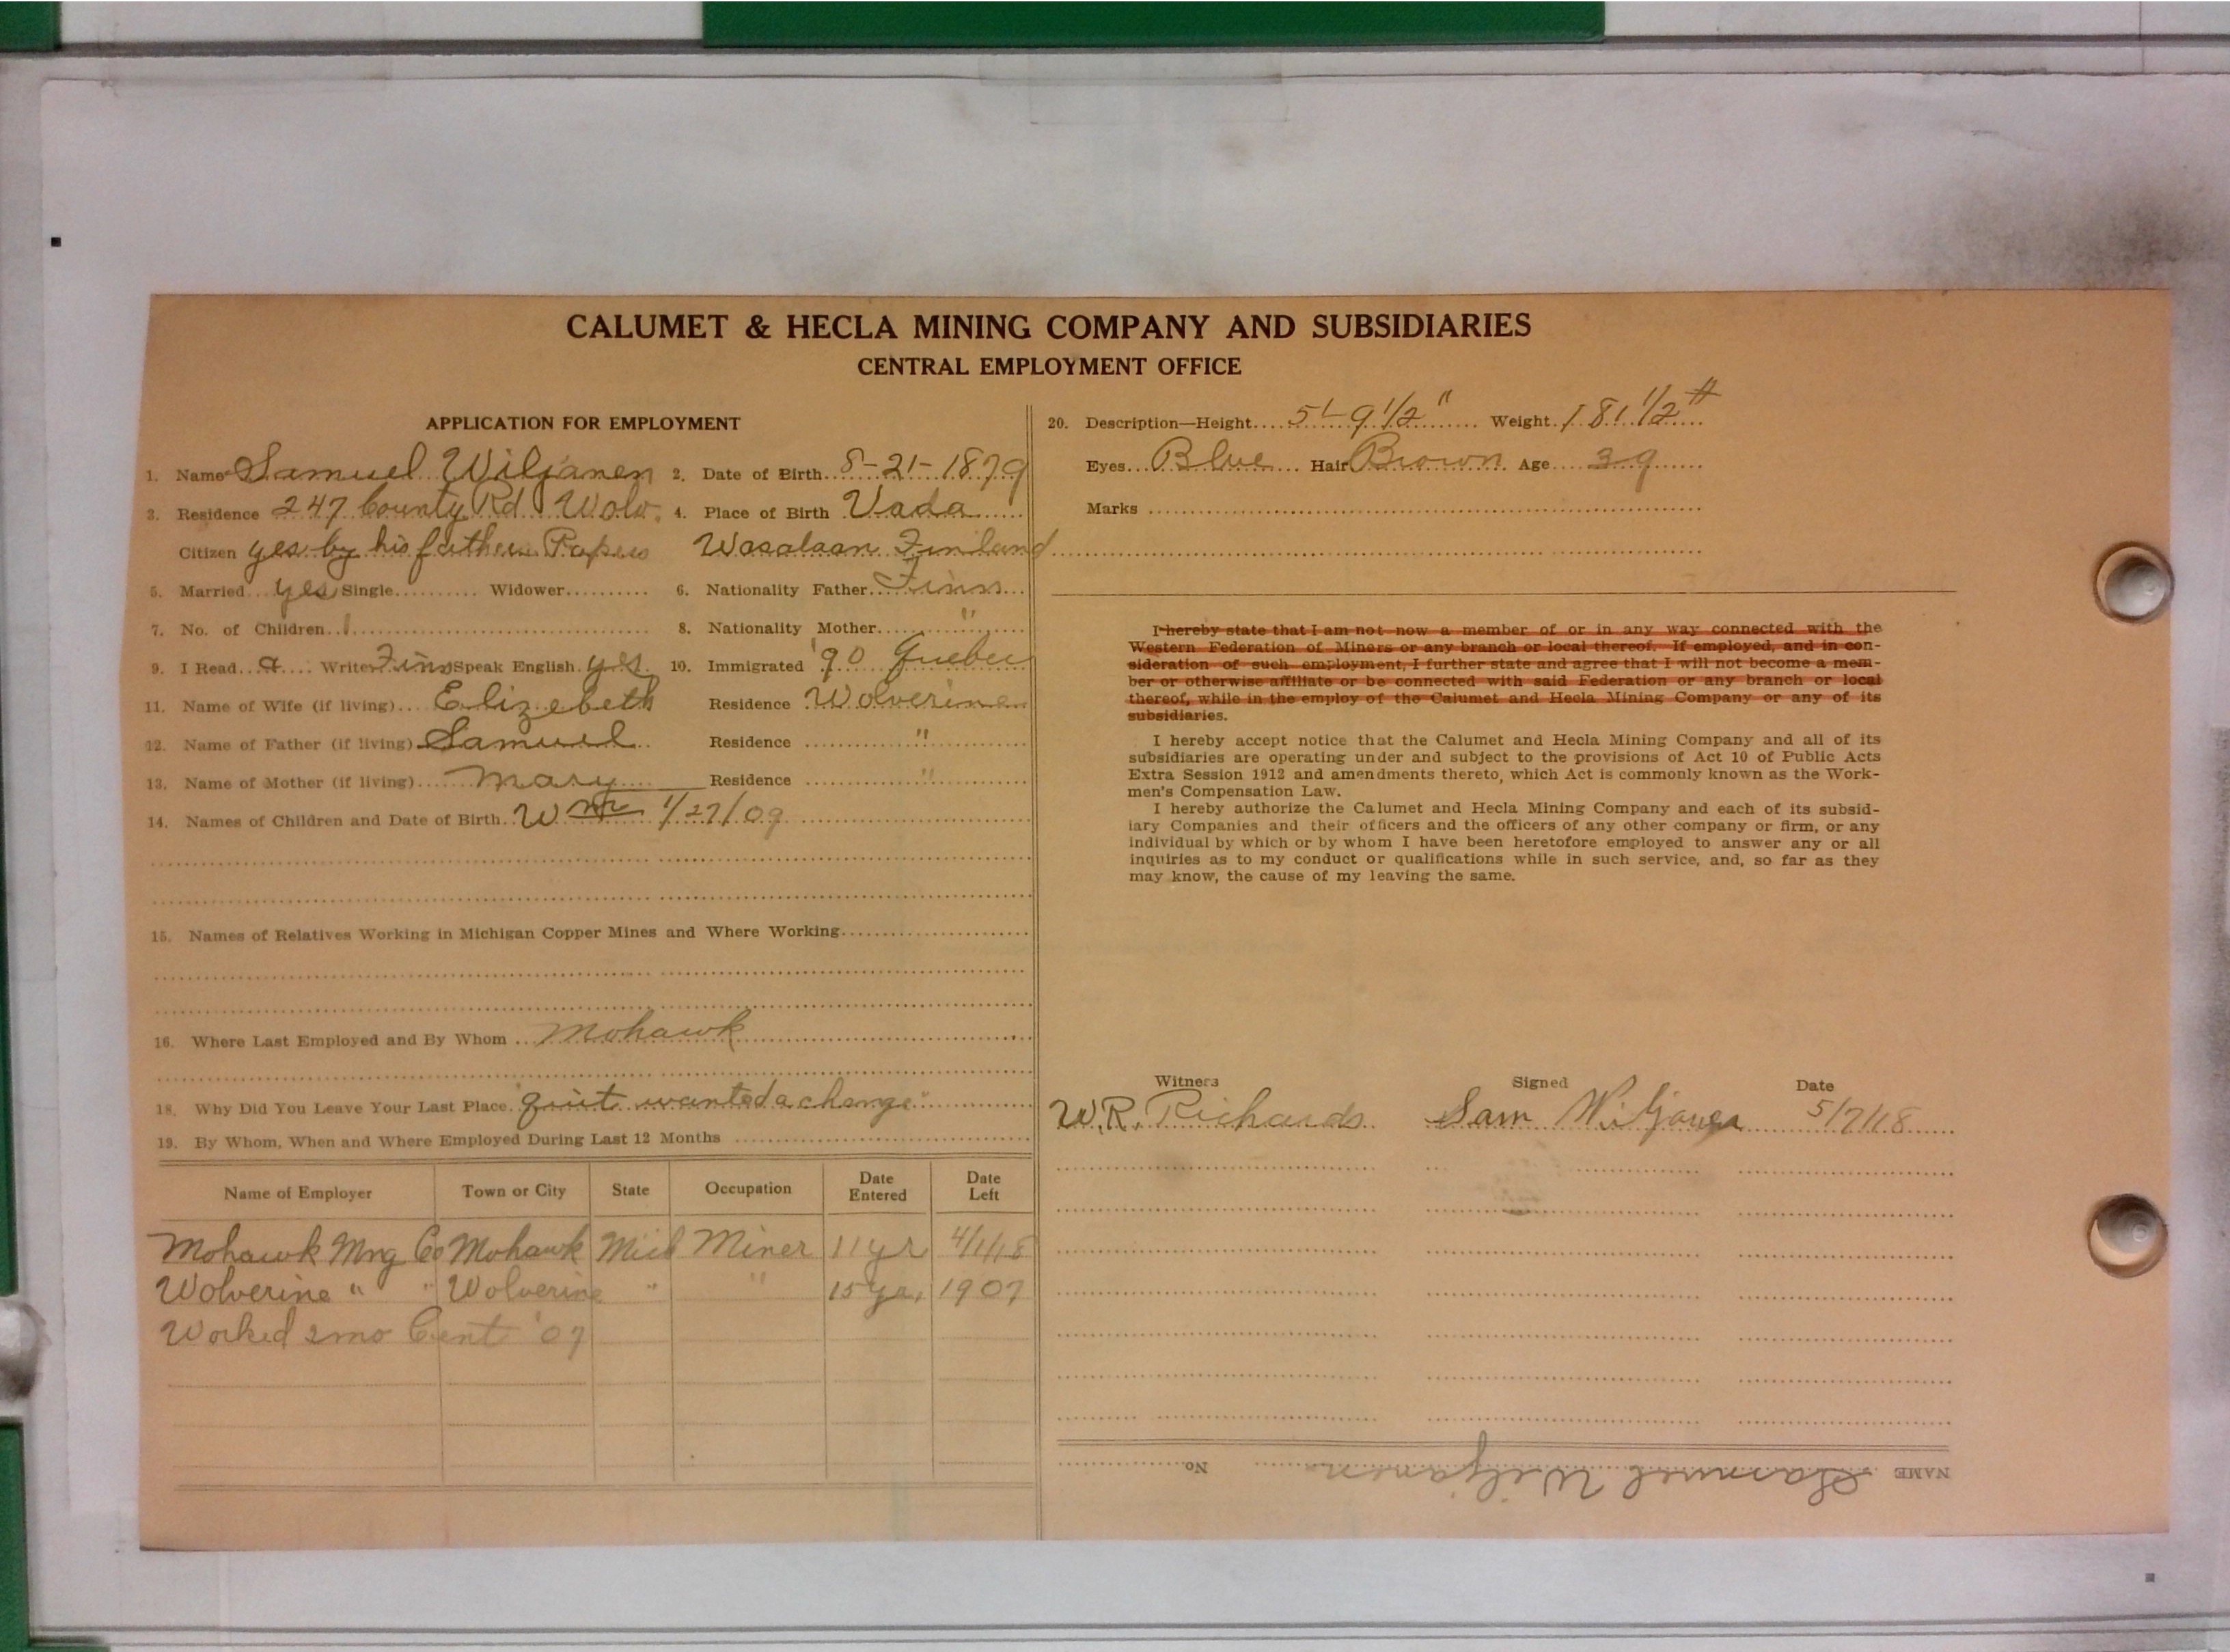 CALUMET & HECLA MINING COMPANY AND SUBSIDIARIES
CENTRAL EMPLOYMENT OFFICE
APPLICATION FOR EMPLOYMENT
1. Name Samuel Wiljanen 2. Date of Birth 8-21-1879
3. Residence 247 County Rd Wolv. 4. Place of Birth Vada
Citizen yes by his father Papers Wasalaan Finland
5. Married yes Single Widower 6. Nationality Father Finn
7. No. of Children 1 8. Nationality Mother "
9. I Read a Write Finn Speak English yes 10. Immigrated '90 Quebec
11. Name of Wife (if living) Elizebeth Residence Wolverine
12. Name of Father (if living) Samuel Residence "
13. Name of Mother (if living) Mary Residence "
14. Names of Children and Date of Birth Wm 1/27/09
15. Names of Relatives Working in Michigan Copper Mines and Where Working
16. Where Last Employed and By Whom Mohawk
18. Why Did You Leave Your Last Place. quit wanted a change"
19. By Whom, When and Where Employed During Last 12 Months
Name of Employer Town or City State Occupation Date Entered Date Left
Mohawk Mng Co Mohawk Mich Miner 11 yr 4/1/18
Wolverine " " Wolverine " " 15 yr. 1907
Worked 2 mo Cent '07
20. Description—Height 5'-9 1/2" Weight 181 1/2 #
Eyes Blue Hair Brown Age 39
Marks
I hereby state that I am not now a member of or in any way connected with the
Western Federation of Miners or any branch or local thereof. If employed, and in con-
sideration of such employment, I further state and agree that I will not become a mem-
ber or otherwise affiliate or be connected with said Federation or any branch or local
thereof, while in the employ of the Calumet and Hecla Mining Company or any of its
subsidiaries.
I hereby accept notice that the Calumet and Hecla Mining Company and all of its
subsidiaries are operating under and subject to the provisions of Act 10 of Public Acts
Extra Session 1912 and amendments thereto, which Act is commonly known as the Work-
men's Compensation Law.
I hereby authorize the Calumet and Hecla Mining Company and each of its subsid-
iary Companies and their officers and the officers of any other company or firm, or any
individual by which or by whom I have been heretofore employed to answer any or all
inquiries as to my conduct or qualifications while in such service, and, so far as they
may know, the cause of my leaving the same.
Witness Signed Date
W.R. Richards Sam Wiljanen 5/7/18
NAME Samuel Wiljanen No.